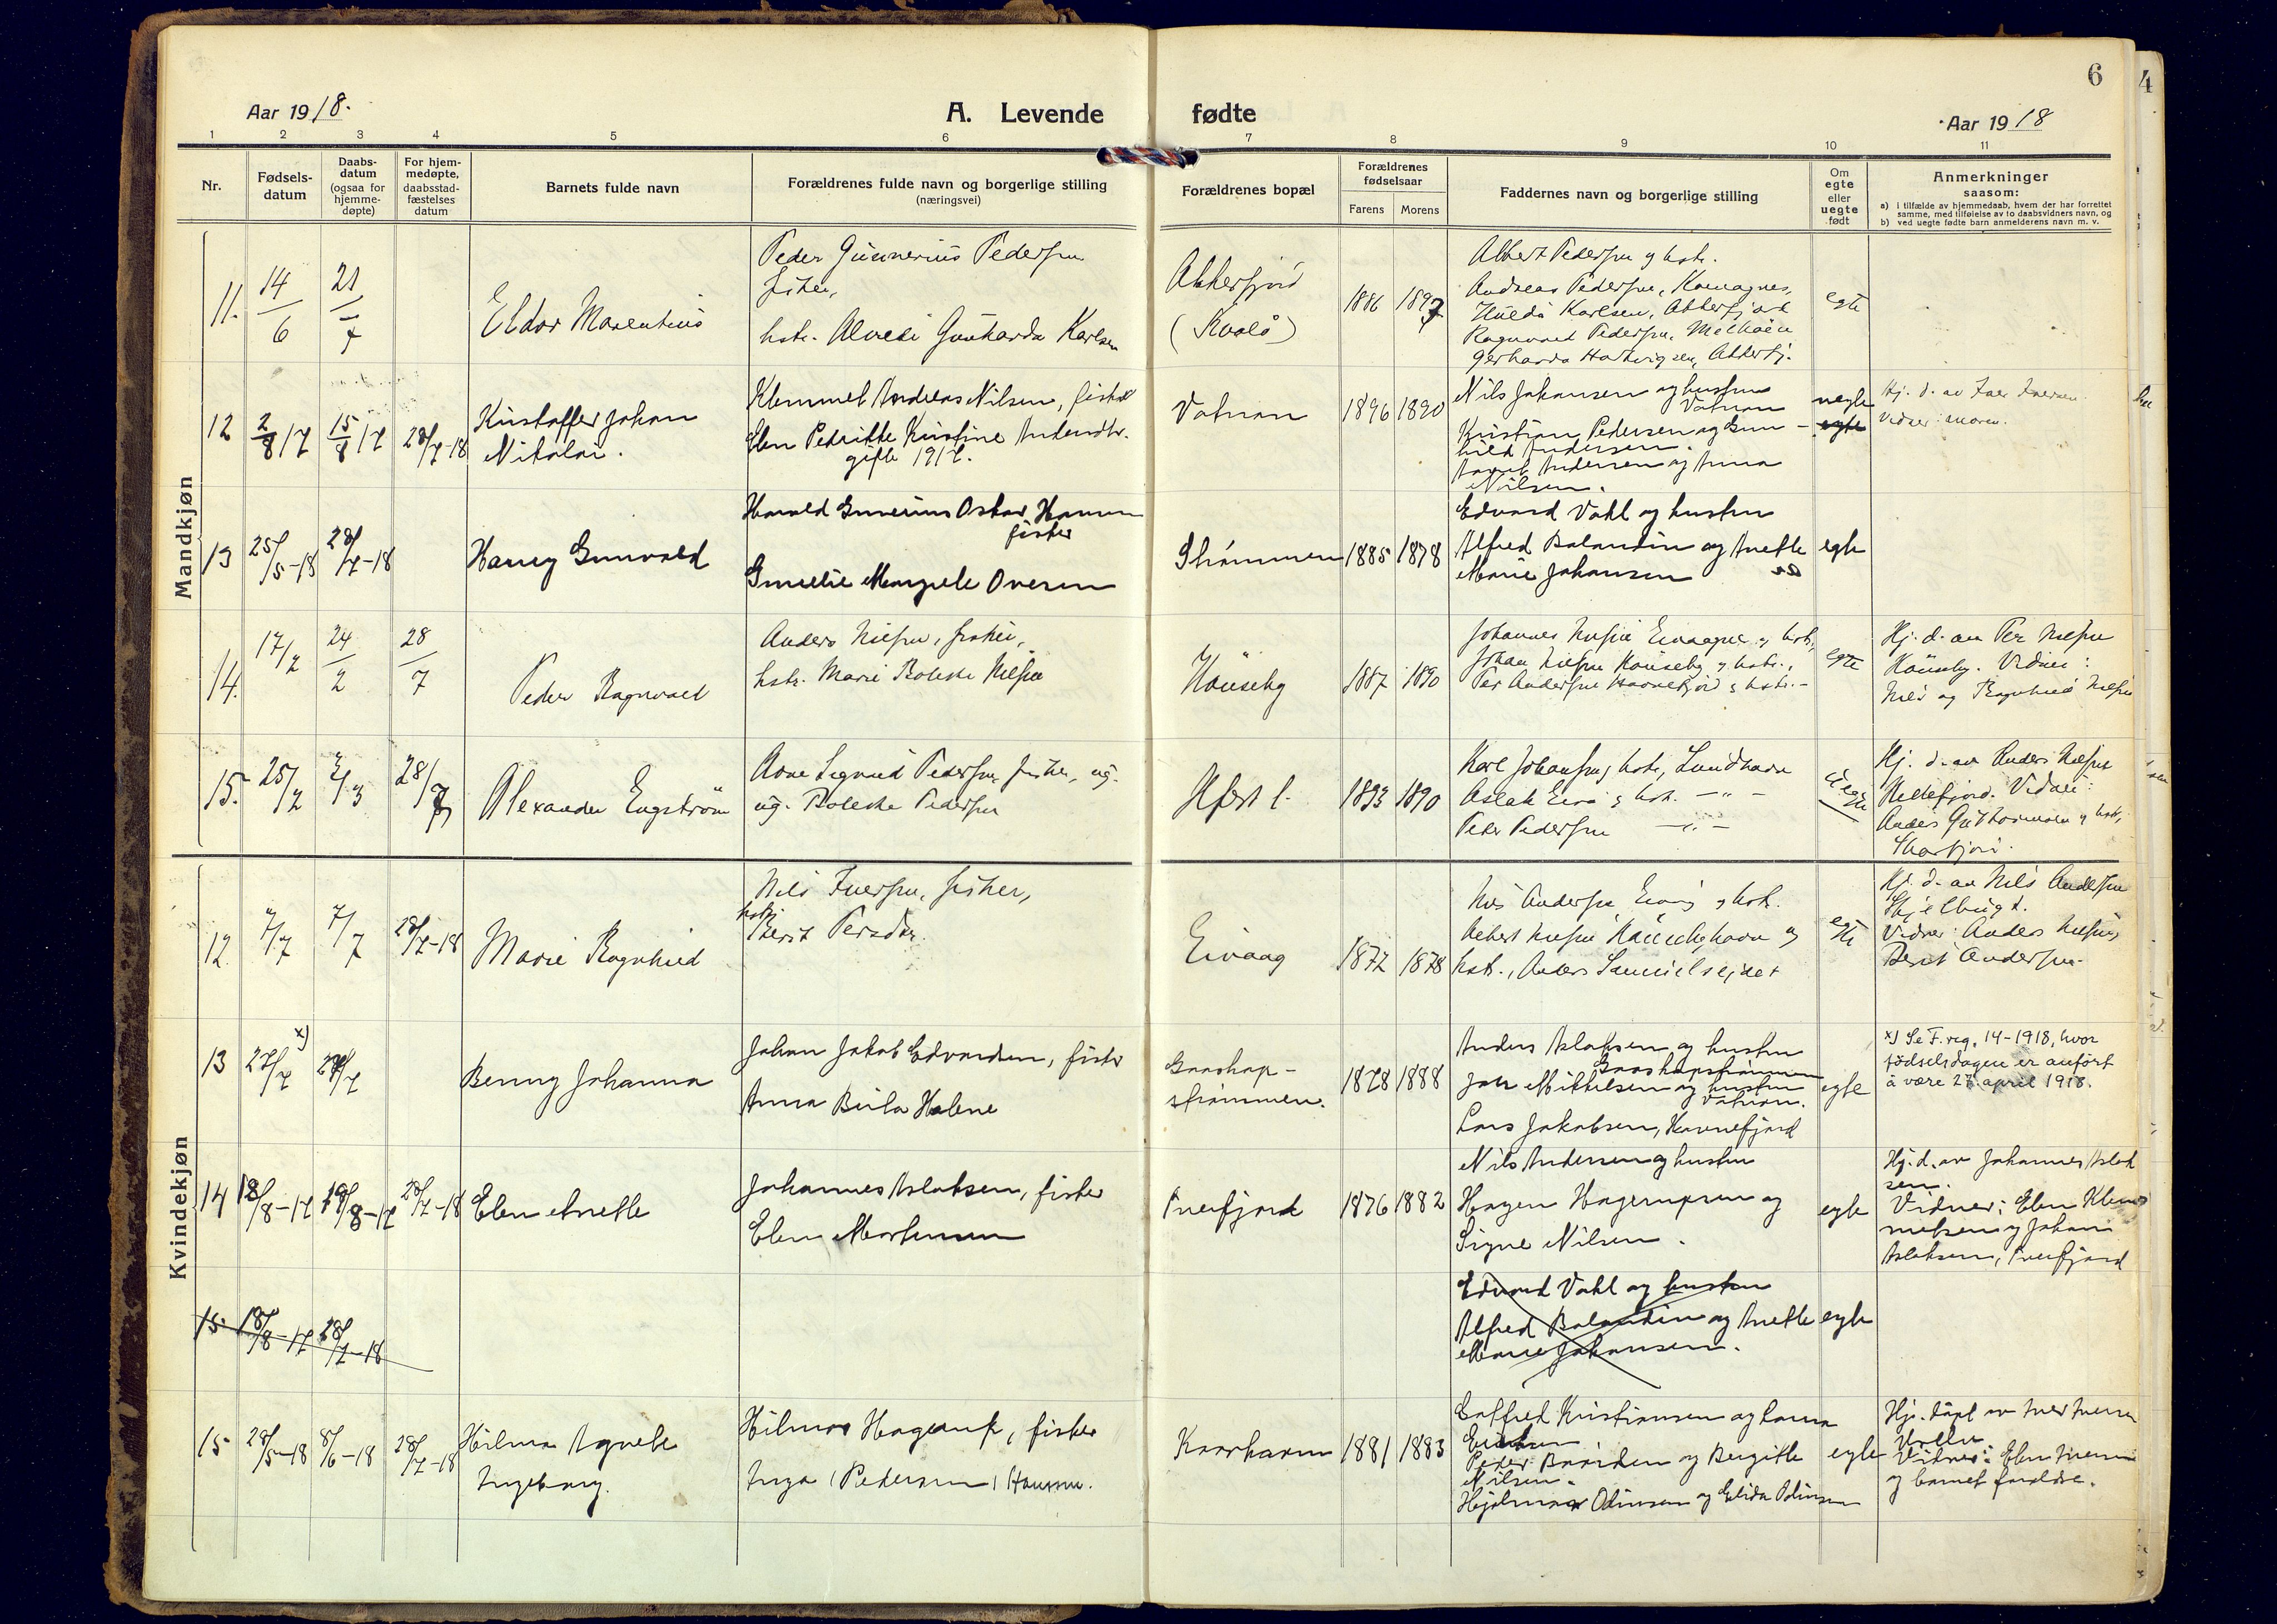 6
4
Aar 1918.
A. Levende
fødte
Aar 1918
1 2 3 4 5 6 7 8 9 10 11
Nr.
Fødsels-
datum
Daabs-
datum
(ogsaa for
hjemme-
døpte)
For hjem-
medøpte,
daabsstad-
fæstelses
datum
Barnets fulde navn
Forældrenes fulde navn og borgerlige stilling
(næringsvei)
Forældrenes bopæl
Forældrenes
fødselsaar
Farens Morens
Faddernes navn og borgerlige stilling
Om
egte
eller
uegte
født
Anmerkninger
saasom:
a) i tilfælde av hjemmedaab, hvem der har forrettet
samme, med tilføielse av to daabsvidners navn, og
b) ved uegte fødte barn anmelderens navn m. v.
Mandkjøn
11.
14/6
21/7
Eldor Marentius
Peder Gunnerius Pedersen
fisker,
hstr. Karlsen
Akkerfjord
(Kvalø)
1886 1897
Albert Pedersen og hstr.
Andreas Pedersen, Komagnes,
Hulda Karlsen, Akkerfjord
Ragnvald Pedersen,
Gerharda Hartvigsen, Akkerfj.
egte
12
2/8 17
15/8 17
28/7-18
Kristoffer Johan
Nikolai.
Klemmet Andreas Nilsen, fisker
Elen Petrikke Kristine Andersdtr.
gifte 1917.
Vatnan
1896 1890
Nils Johansen og hustru
Vatnan
Kristian Pedersen og Gun-
hild Andersen.
Andersen og Anna
Nilsen.
uegte
egte
Hj. d. av Iver Iversen.
Vidner: moren.
13
25/5-18
28/7-18
Harry Gunvald
Harald Oskar Hansen
fisker
Margrete Ovesen
Strømmen
1885 1878
Edvard Vahl og hustru
Alfred Balandin og Anette
Marie Johansen
egte
14.
17/2
24/2
28/7
Peder Ragnvald
Anders Nilsen, fisker,
hstr. Marie Bolette Nilsen
Kåuseby
1887 1890
Johannes Nilsen Eivaagen og hstr.,
Johan Nilsen Kåuseby og hstr.,
Per Andersen og hstr.-
egte
Hj. d. av Per Nilsen
Kåuseby. Vidner:
Nils og Ragnhild Nilsen
15.
25/2
2/3
28/7
Alexander Engstrøm
Arne Sigvald Pedersen, fisker, ug.
ug. Bolette Pedersen
1893 1890
Karl Johansen og hstr., Sundhavn
Aslak og hstr. -"-
Peder Pedersen -"-
uegte
Hj. d. av Anders Nilsen
Kellefjord. Vidner:
Anders og hstr,
Skarfjord.
Kvindekjøn
12
4/7
7/7
28/7-18
Marie Ragnhild
Nils Iversen, fisker,
hstr.
Berit Persdtr.
Eivaag
1872 1878
Nils Andersen Eivaag og hstr.
Albert Nilsen og
hstr., Anders Samuelsejdet
egte
Hj. d. av Nils Andersen
Skjelbugt.
Vidner: Anders Nilsen,
Berit Andersen.
13
27/7 x)
28/7
Benny Johanna
Johan Jakob Edvardsen, fisker
Anna Berta Helene
Gaashop-
strømmen.
1878 1888
Anders Aslaksen og hustru
Gaashopstrømmen
Mikkelsen og hustru
Vatnan.
Lars Jakobsen, Kovnefjord
egte
x) Se F. reg. 14-1918, hvor
fødselsdagen er anført
å være 27. april 1918.
14
18/8-17
19/8-17
28/7-18
Elen Anette
Johannes Aslaksen, fisker
Elen Mortensen
1876 1882
Nils Andersen og hustru
Hagen Hagerupsen og
Signe Nilsen.
egte
Hj. d. av Johannes Aslak
sen.
Vidner: Elen Klem
metsen og Johan
Aslaksen,
15.
18/8-17
28/7-18
Edvard Vahl og hustru
Alfred Balandin og Anette
Marie Johansen.
egte
15
28/5-18
8/6-18
28/7-18
Hilma Agnete
Ingeborg.
Hilmar Hagerup, fisker
Inga (Pedersen) Hansen.
Kaarhavn
1881 1883
Kristiansen og
Peder og Bergitte
Nilsen.
Hjalmar Odinsen og Elida Odinsen
egte
Hj. døpt av Iver Iversen
Vidner: Elen Iversen
og barnets forældre.